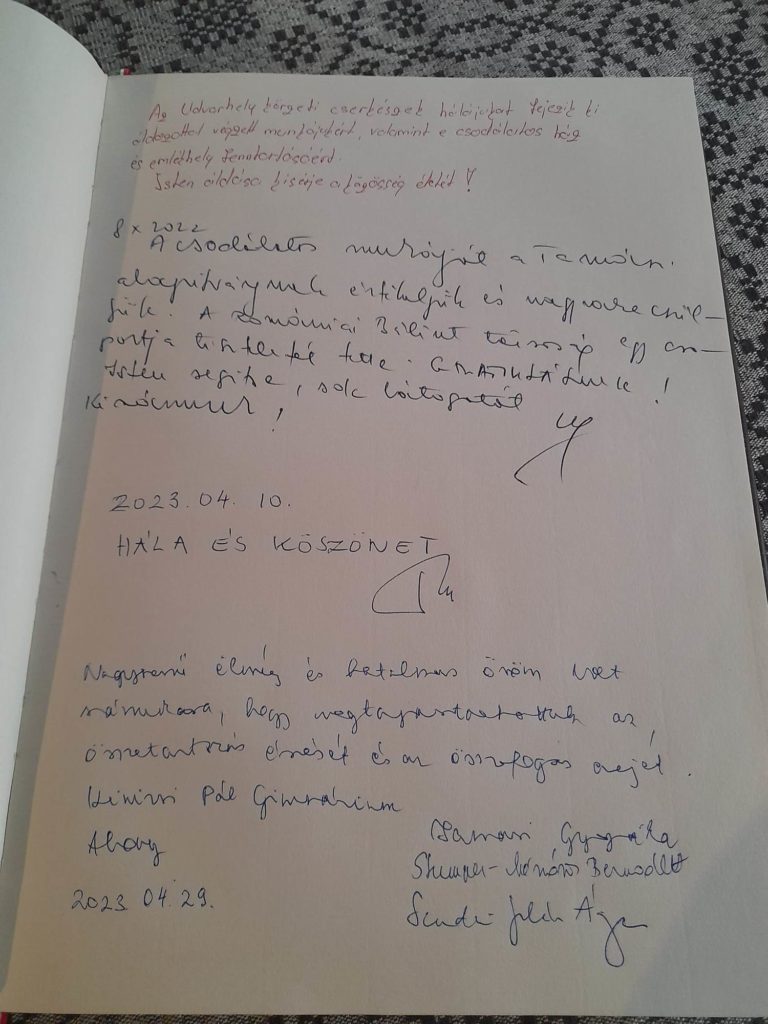 Az Udvarhely térségi cserkészek hálájukat fejezik ki
áldozattal végzett munkájukért, valamint e csodálatos ház
és emlékhely fenntartásáért.
Isten áldása kísérje a közösség életét!
8 X 2022
A csodálatos munkáját a Tamási
alapítványnak értékeljük és nagyra becsül-
jük. A Romániai Bálint társaság egy cso-
portja tiszteletét tette. GRATULÁLUNK!
Isten segítse, sok látogatót
Kívánunk!
2023.04.10.
HÁLA ÉS KÖSZÖNET
Nagyszerű élmény és hatalmas öröm volt
számunkra, hogy megtapasztalhattuk az
összetartozás érzését és az összefogás erejét.
Kinizsi Pál Gimnázium
Abony
Gyopárka
Bernadett
2023 04.29.